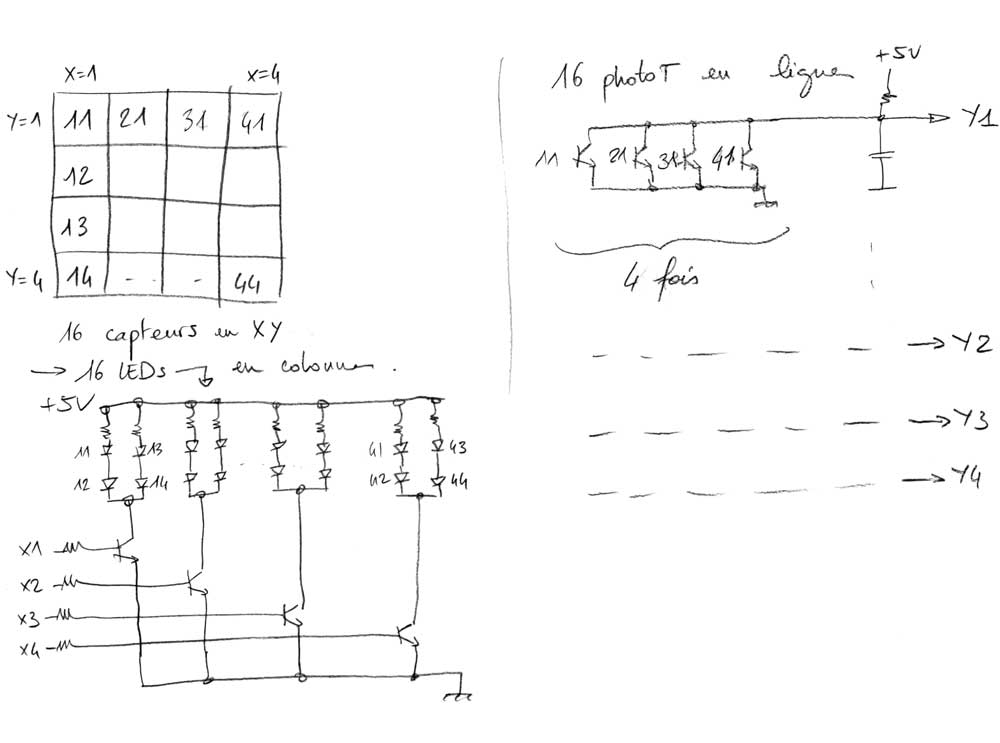 X=1 X=4
Y=1 11 21 31 41
12
13
Y=4 14 - - - 44
16 capteurs en XY
→ 16 LEDs → en colonnes.
+5V
11 13 41 43
12 14 42 44
X1
X2
X3
X4
16 photoT en lignes
+5V
Y1
11 21 31 41
4 fois
Y2
Y3
Y4